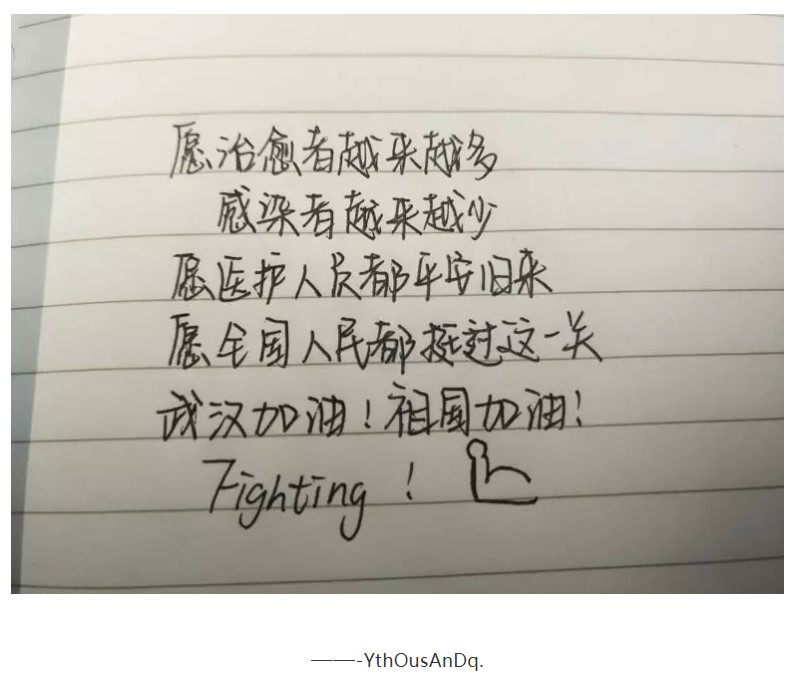 愿治愈者越来越多
感染者越来越少
愿医护人员都平安归来
愿全国人民都挺过这一关
武汉加油！祖国加油！
Fighting！
———-YthOusAnDq.